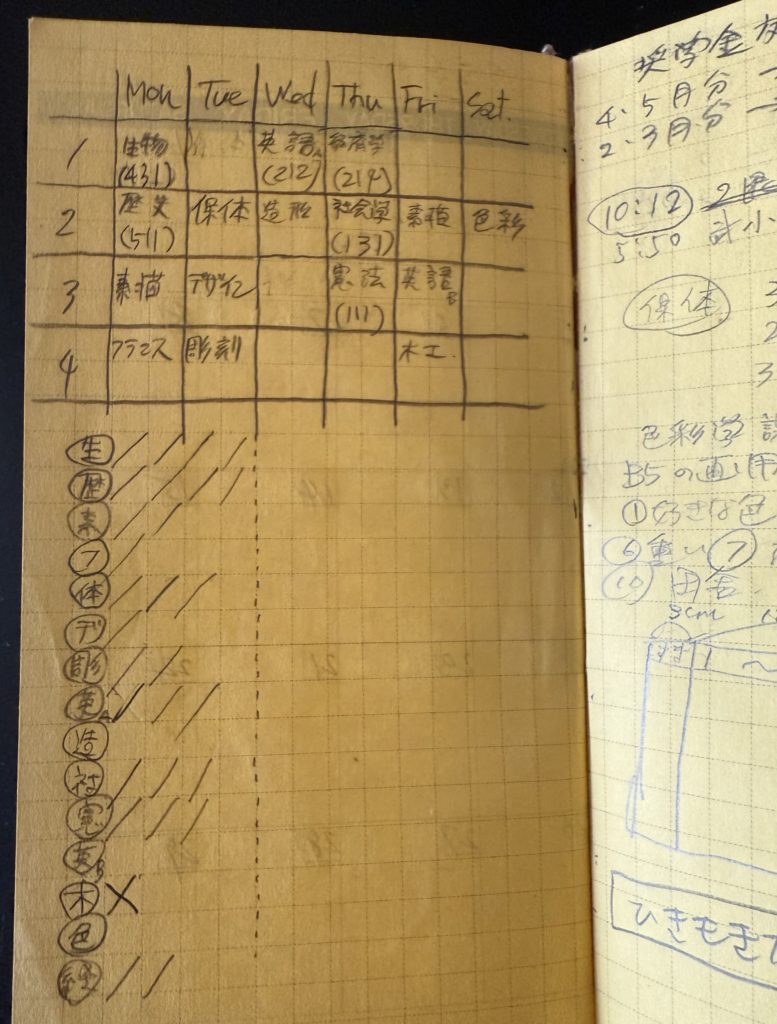 Mon Tue Wed Thu Fri Sat.
1 生物 英語A 経済学
(431) (212) (214)
2 歴史 保体 造形 社会学 素描 色彩
(511) (137)
3 素描 デザイン 憲法 英語B
(111)
4 フランス 彫刻 木工
生
歴
素
フ
体
デ
彫
英A
造
社
憲
英B
木
色
経
奨学金
4.5月分
2.3月分
10:12
5:50
保体
色彩学
B5の画用
①好きな色
⑥重い ⑦
⑩ 田舎
3cm
ひきもき